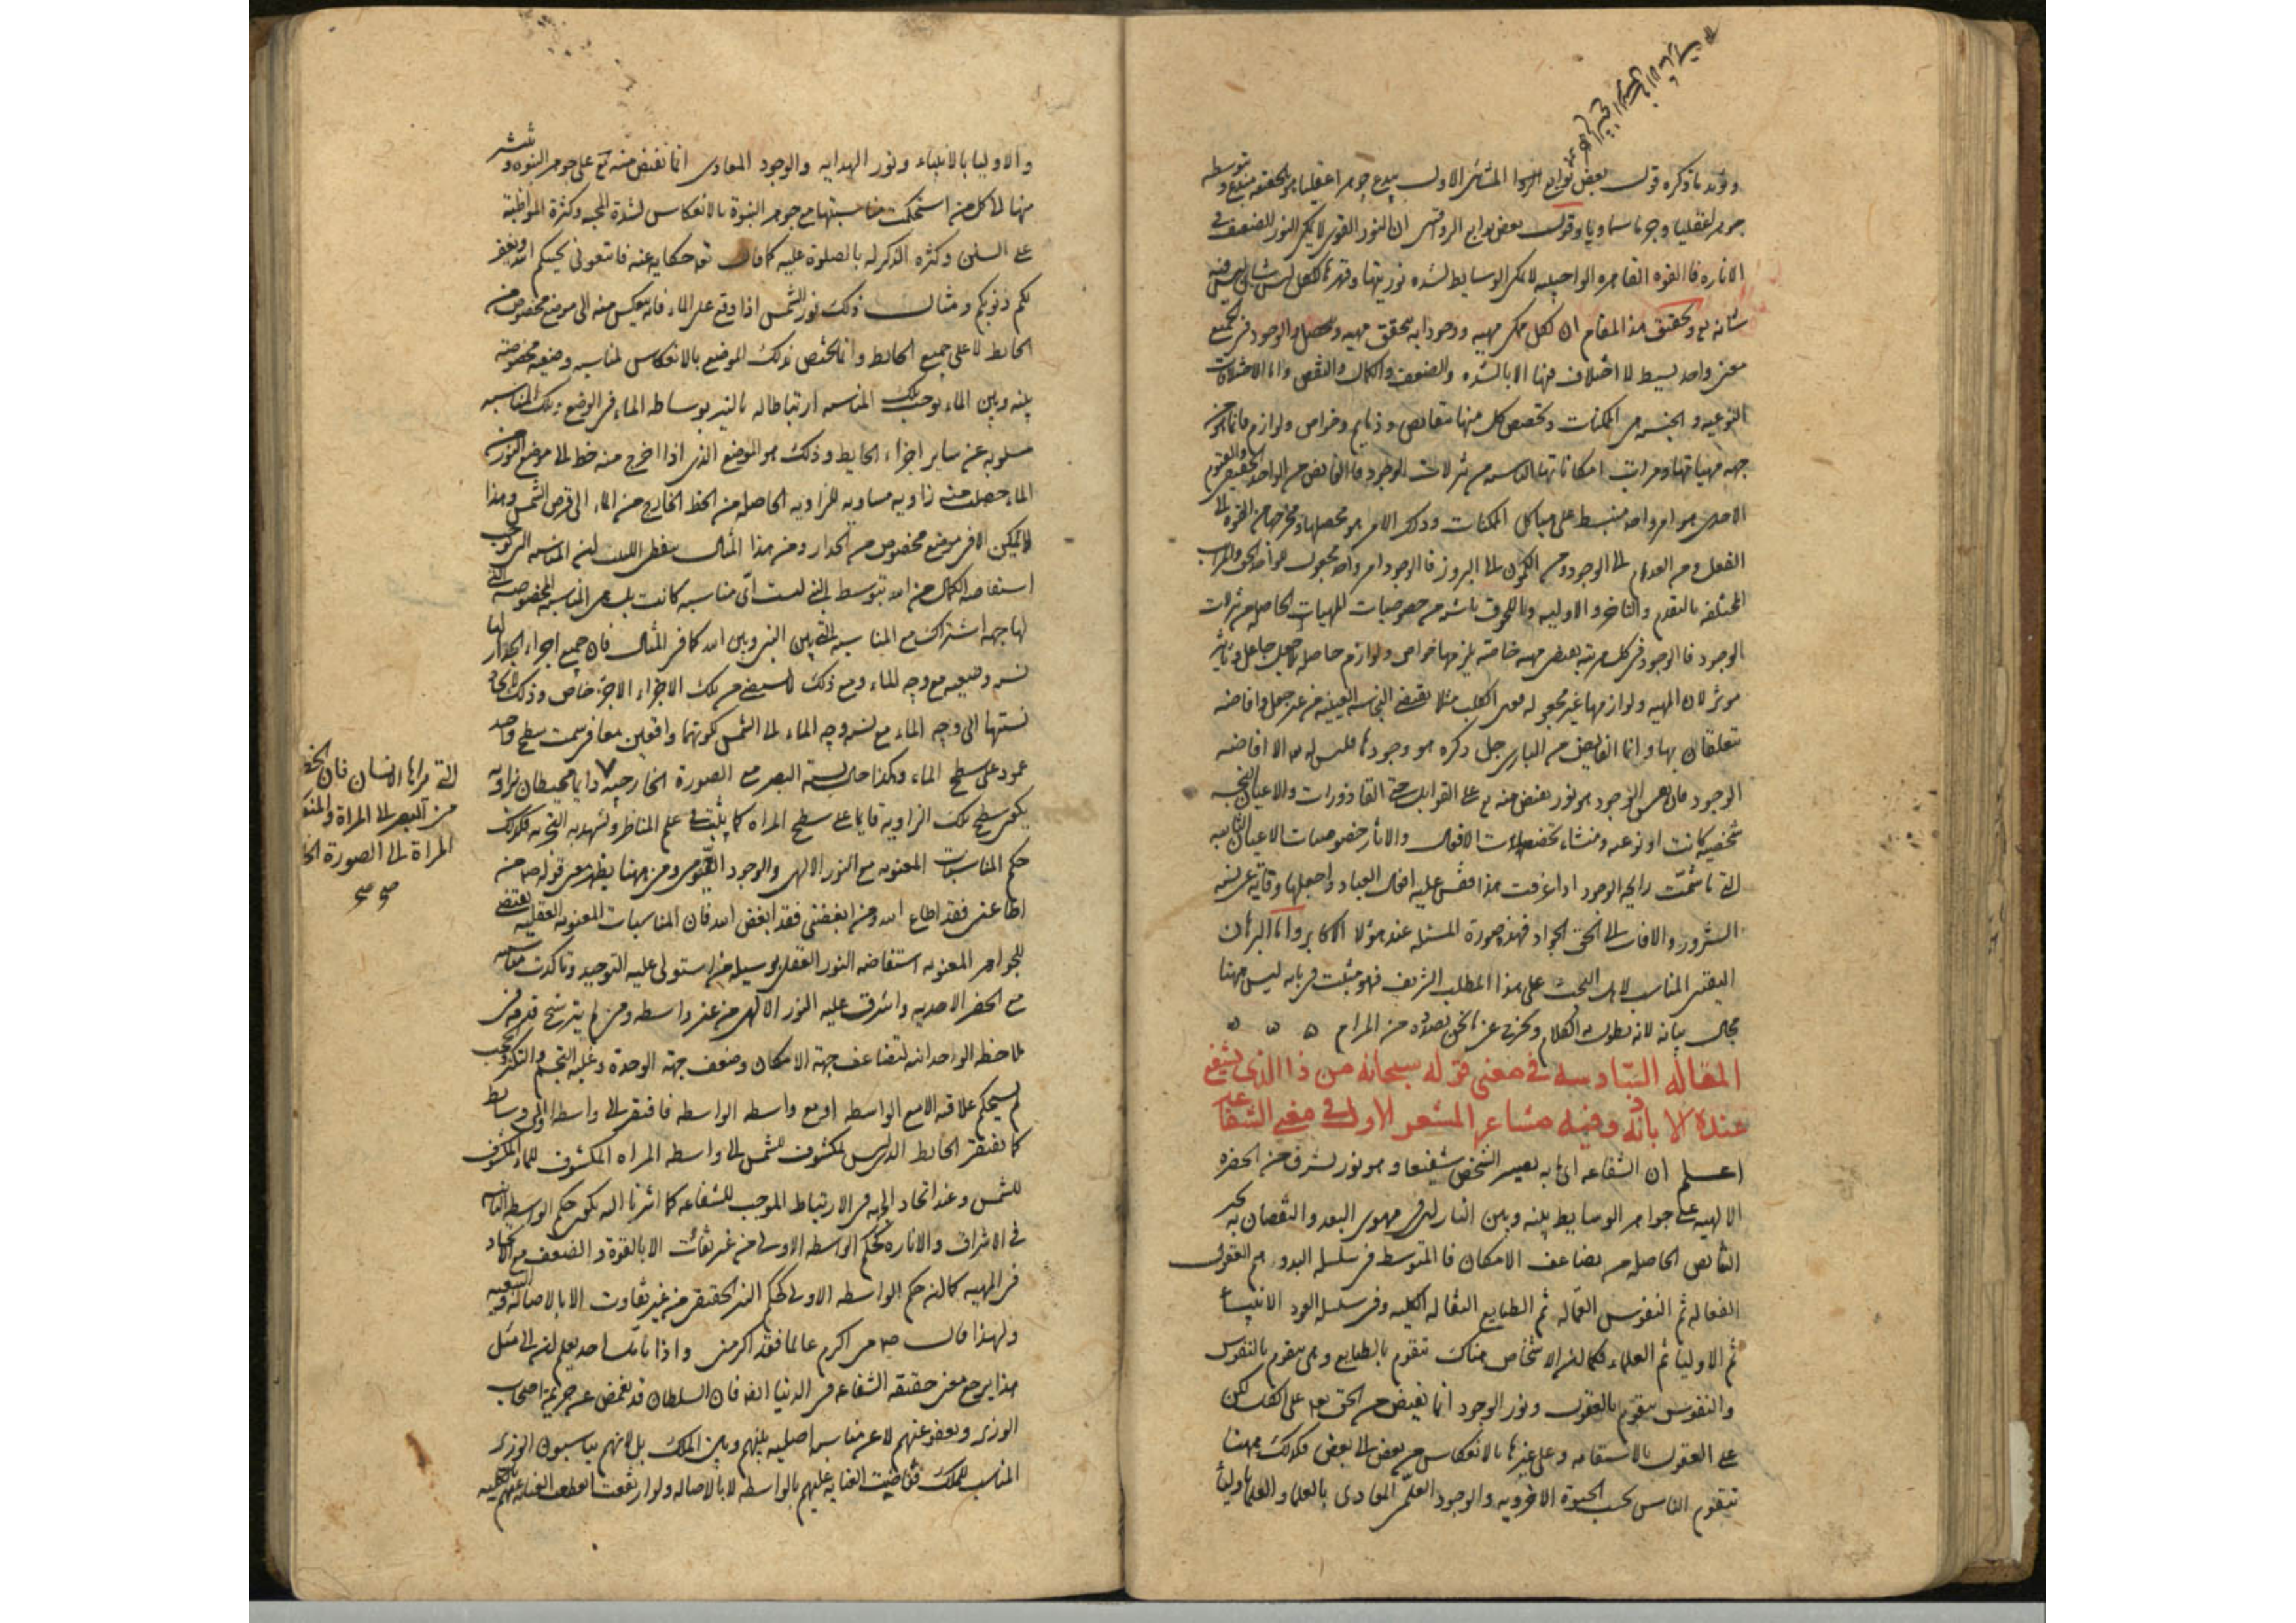 ويؤيد ما ذكره قول بعض توابع المشائين الاول يبدع جوهرا عقليا هو بالحقيقة مبدع وبتوسطه
جوهرا عقليا وجرما سماويا وقول بعض توابع الرواقيين ان النور القوي لا يمكن النور الضعيف في
الانارة فالقوة القاهرة الواجبية لا تمكن الوسايط لشدة نوريتها وقهر
شانه وتحقيق هذا المقام ان لكل ممكن مهيه ووجودا به يتحقق مهيه ويحصل والوجود في الجميع
معنى واحد بسيط لا اختلاف فيها الا بالشده والضعف والكمال والنقص واما الاختلافات
النوعيه والجنسيه في الممكنات وتخصص كل منها بنقايص وذمايم وخواص ولوازم فانما هو من
جهه مهياتها ومراتب امكاناتها الناشيه من تنزلات الوجود فالفايض من الواحد الحقيقي والقيوم
الاحدي هو امر واحد منبسط على هياكل الممكنات وذلك الامر هو محصلها ومخرجها من القوه الى
الفعل ومن العدم الى الوجود ومن الكمون الى البروز فالوجود امر واحد مجعول للواحد الحق والمراتب
المختلفه بالتقدم والتاخر والاوليه واللحوق ناشيه من خصوصيات المهيات الحاصله من تنزلات
الوجود فالوجود في كل مرتبه يقتضي مهيه خاصه يلزمها خواص ولوازم حاصله لا بجعل جاعل وتاثير
موثر لان المهيه ولوازمها غير مجعوله فمعنى الكلب مثلا يقتضي النجاسه العينيه من غير جعل وافاضه
يتعلقان بها وانما الفايض من الباري جل ذكره هو وجودها فليس له الا افاضه
الوجود فان نفس الوجود هو نور يفيض منه تع على القوابل حتى القاذورات والاعيان النجسه
شخصيه كانت او نوعيه ومنشاء تخصصات الافعال والاثار خصوصيات الاعيان الثابته
التي ما شمت رايحه الوجود اذا عرفت هذا فقس عليه افعال العباد واجعلها وقايه عن نسبه
الشرور والافات الى الحق الجواد فهذه صورة المسئله عند هؤلا الاكابر واما البرهان
اليقيني المناسب لاهل البحث على هذا المطلب الشريف فهو مثبت في بابه ليس ههنا
مجال بيانه لانه يطول به الكلام ويخرج عن ما نحن بصدده من المرام ه ه ه
المقاله السادسه في معنى قوله سبحانه من ذا الذي يشفع
عنده الا باذنه وفيه مشاعر المشعر الاول في معنى الشفاعه
اعلم ان الشفاعه ما به يصير الشخص شفيعا وهو نور يشرق من الحضره
الالهيه على جواهر الوسايط بينه وبين النازلين في مهوى البعد والنقصان به يجبر
النقايص الحاصله من تضاعف الامكان فالمتوسط في سلسله البدو هم العقول
الفعاله ثم النفوس العماله ثم الطبايع النقاله الكليه وفي سلسله العود الانبياء
ثم الاوليا ثم العلماء فكما ان الاشخاص هناك تتقوم بالطبايع وهي تتقوم بالنفوس
والنفوس تتقوم بالعقول ونور الوجود انما يفيض من الحق تع على الكل لكن
على العقول بالاستقامه وعلى غيرها بالانعكاس من بعض الى بعض فكذلك ههنا
تتقوم الناس بحسب الحيوة الاخرويه والوجود العلمي المعادي بالعلما والعلما بالاوليا
والاوليا بالانبياء ونور الهدايه والوجود المعادي انما يفيض منه تع على جوهر النبوه وينتشر
منها الى كل من استحكمت مناسبتها مع جوهر النبوة بالانعكاس لشدة المحبه وكثرة المواظبه
على السنن وكثره الذكر له بالصلوة عليه كما قال تع حكايه عنه فاتبعوني يحببكم الله ويغفر
لكم ذنوبكم ومثال ذلك نور الشمس اذا وقع على الماء فانه ينعكس منه الى موضع مخصوص من
الحائط لا على جميع الحائط وانما يختص ذلك الموضع بالانعكاس لمناسبه وضعيه مخصوصه
بينه وبين الماء توجب تلك المناسبه ارتباطا له بالنير بوساطه الماء في الوضع وتلك المناسبه
مسلوبه عن ساير اجزاء الحايط وذلك هو الموضع الذي اذا خرج منه خط الى موضع النور من
الماء حصلت منه زاويه مساويه للزاويه الحاصله من الخط الخارج من الماء الى قرص الشمس وهذا
لا يمكن الا في موضع مخصوص من الجدار ومن هذا المثال يتفطن اللبيب ان المناسبه التي توجب
استفاضه الكمال من الله بتوسط النبي ليست اي مناسبه كانت بل هي المناسبه المخصوصه التي
لها جهه اشتراك مع المناسبه التي بين النبي وبين الله كما في المثال فان جميع اجزاء الجدار لها
نسبه وضعيه مع وجه الماء ومع ذلك لا يستضيء من تلك الاجزاء الا جزء خاص وذلك لاتحاد
نسبتها الى وجه الماء مع نسبه وجه الماء الى الشمس لكونهما واقعين معا في سمت سطح واحد
عمود على سطح الماء وهكذا حال نسبه البصر مع الصورة الخارجيه دايما محيطان بزاويه
يكون سطح تلك الزاويه قايما على سطح المراه كما يثبت في علم المناظر وتشهد به التجربه فكذلك
حكم المناسبات المعنويه مع النور الالهي والوجود القيومي ومن ههنا يظهر معنى قوله ص من
اطاعني فقد اطاع الله ومن ابغضني فقد ابغض الله فان المناسبات المعنويه العقليه يقتضي
للجواهر المعنويه استفاضه النور العقلي بوسيله من استولى عليه التوحيد وتاكدت مناسبته
مع الحضره الاحديه واشرق عليه النور الالهي من غير واسطه ومن لم يترسخ قدمه في
ملاحظه الواحدانيه لتضاعف جهة الامكان وضعف جهة الوحدة وغلبه التجسم والتكثر
لم يستحكم علاقته الا مع الواسطه او مع واسطه الواسطه فافتقر الى واسطه او الى وسايط
كما يفتقر الحايط الذي ليس بمكشوف للشمس الى واسطه المراه المكشوف للماء المكشوف
للشمس وعند اتحاد الجهه في الارتباط الموجب للشفاعه كما اشرنا اليه يكون حكم الواسطه الثانيه
في الاشراق والاناره كحكم الواسطه الاولى من غير تفاوت الا بالقوة والضعف مع الاتحاد
في المهيه كما ان حكم الواسطه الاولى كحكم النير الحقيقي من غير تفاوت الا بالاصاله والتبعيه
ولهذا قال ص من اكرم عالما فقد اكرمني واذا تامل احد يعلم ان الى مثل
هذا يرجع معنى حقيقه الشفاعه في الدنيا ايضا فان السلطان قد يغمض عن جريمة اصحاب
الوزير ويعفو عنهم لا عن مناسبه اصليه بينهم وبين الملك بل لانهم يناسبون الوزير
المناسب للملك ففاضت العنايه عليهم بالواسطه لا بالاصاله ولو ارتفعت انقطعت العنايه عنهم بالكليه
التي مراها الانسان فان الخط
من البصر الى المراة والمنعـ
المراة الى الصورة الخا
صح صح